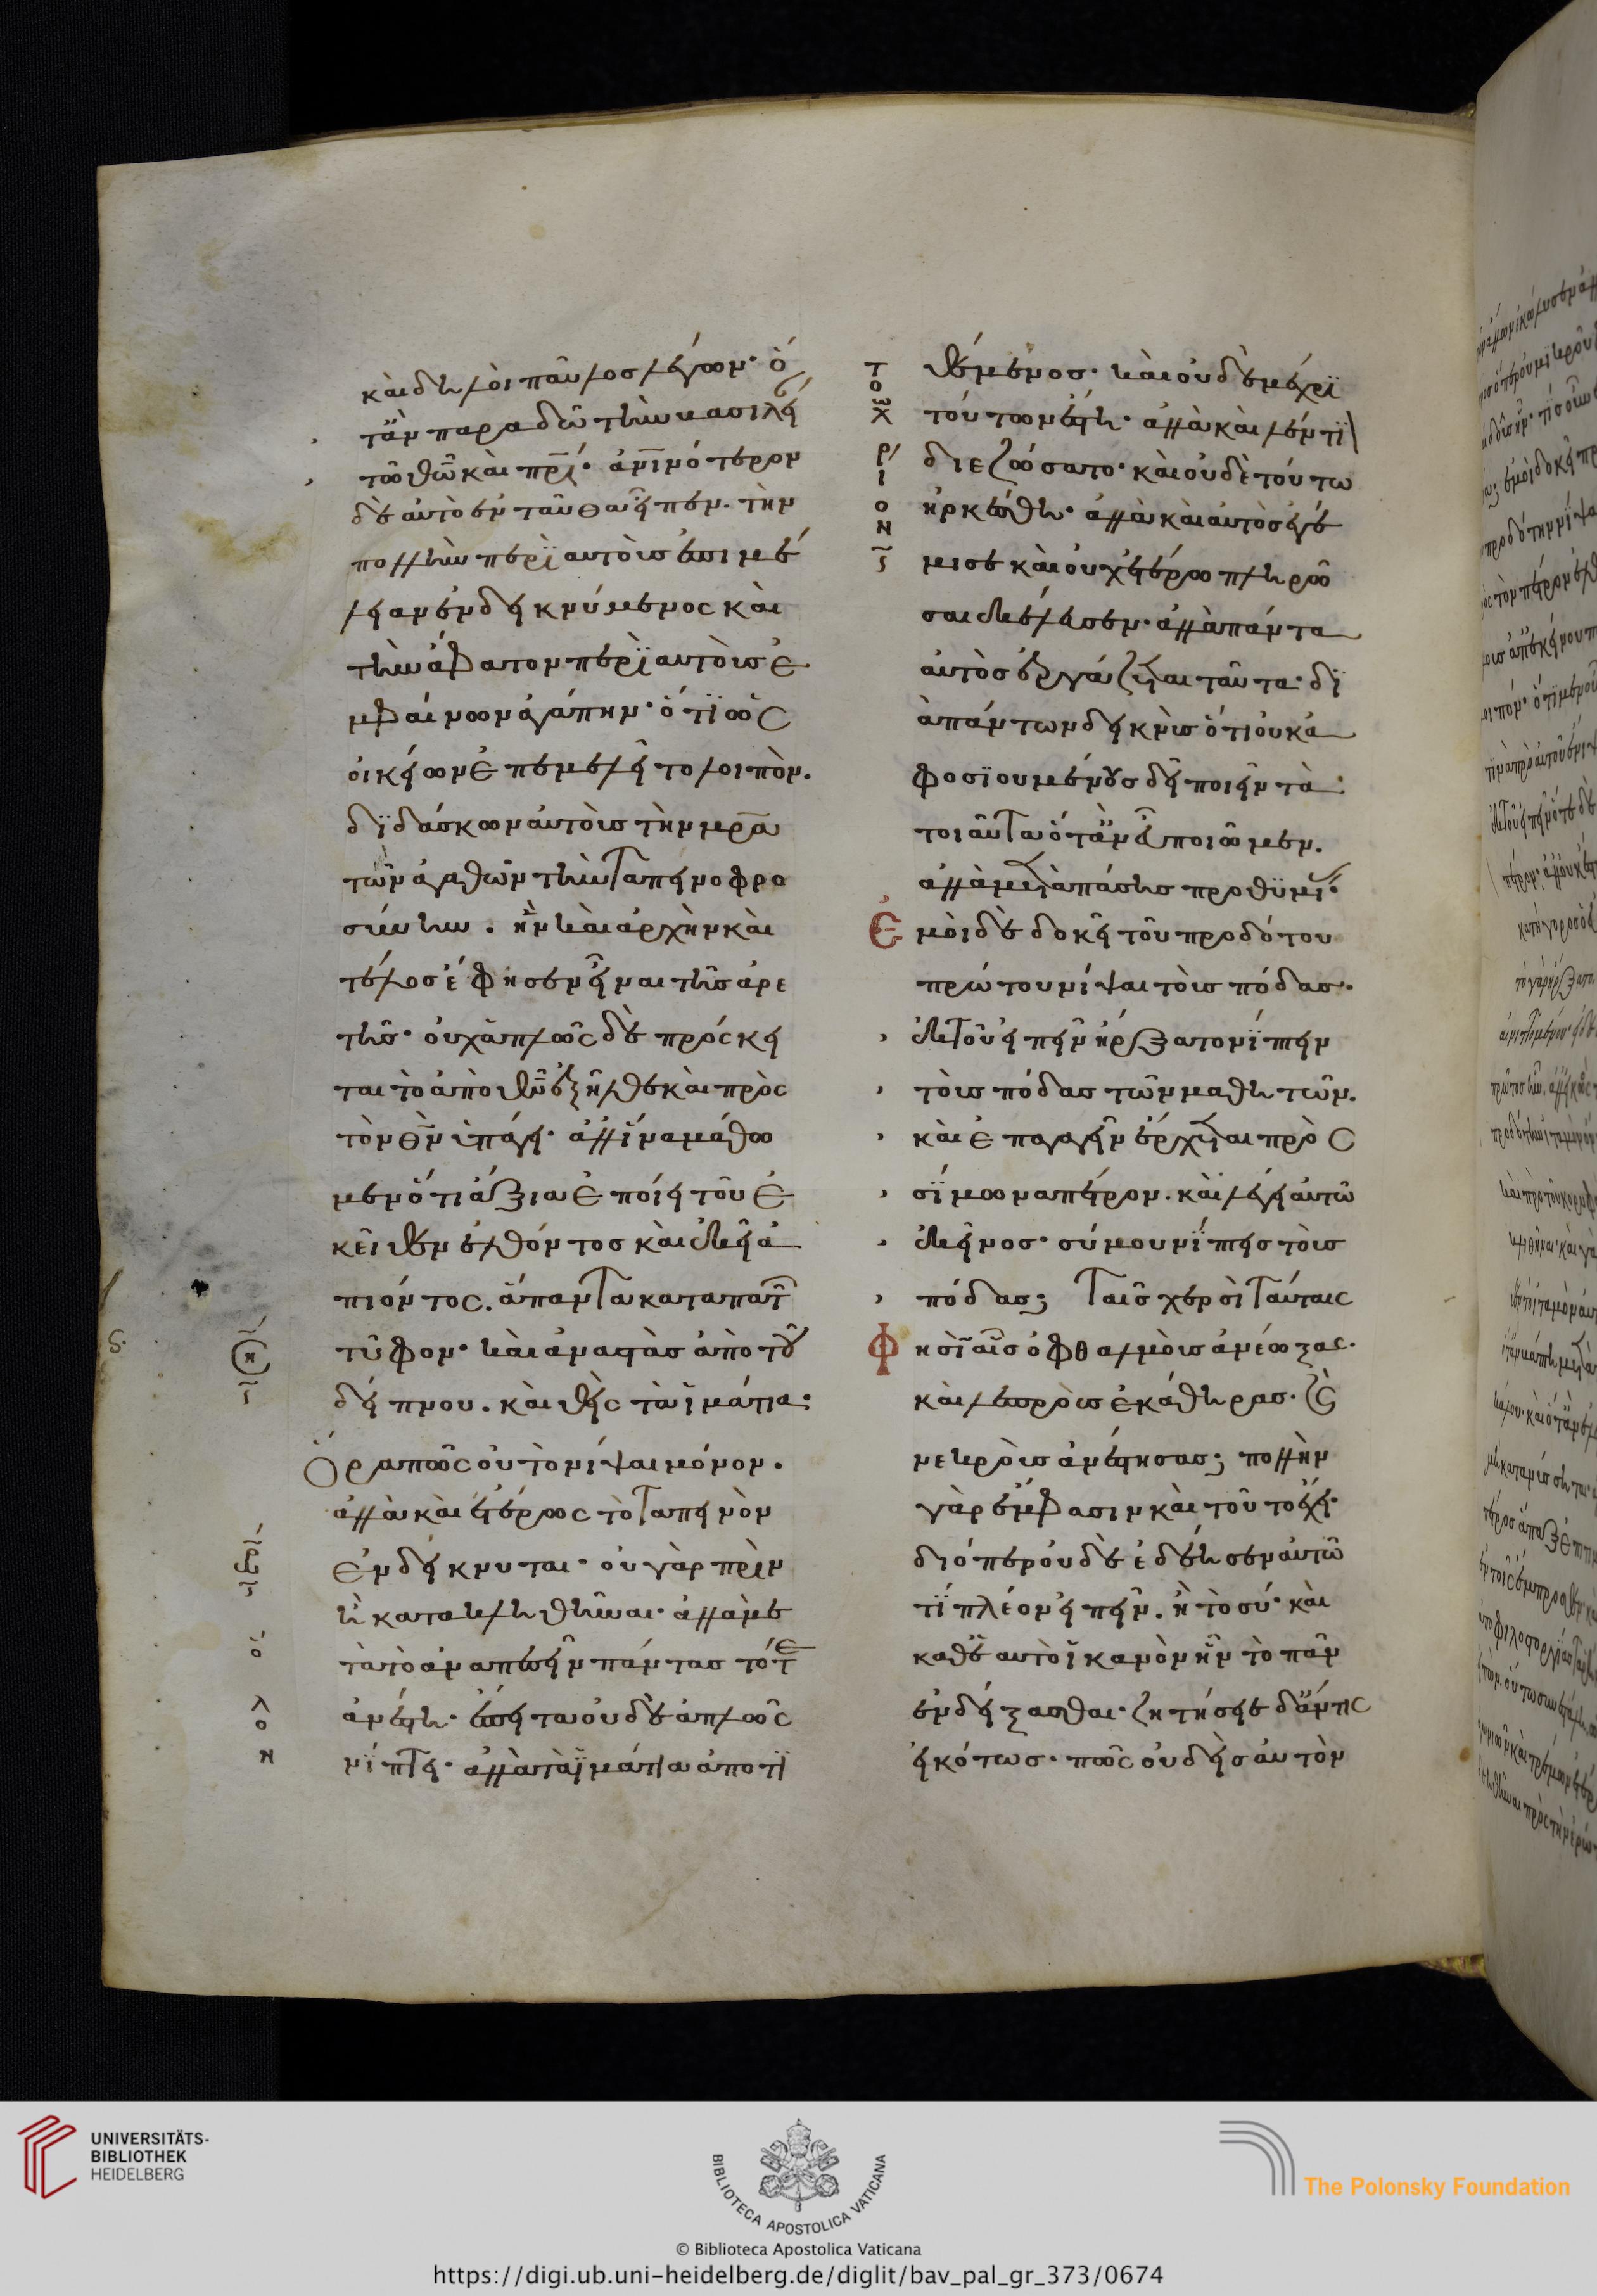 καὶ δηλοῖ παῦλος λέγων· ὅ
τἂν παραδῶ τὴν βασιλεί
τῶ θῶ καὶ πρί· ἀνινότερον
δὲ αὐτὸ ἐνταῦθα εἶπεν. τὴν
πολλὴν περὶ αὐτοὺς ἐπιμέ
λειαν ἐνδεικνύμενος καὶ
τὴν ἄφατον περὶ αὐτοὺς ἐ
μφαίνων ἀγάπην· ὅτι ὡς
οἰκείων ἐπεμελεῖτο λοιπόν.
διδάσκων αὐτοὺς τὴν μρα
τῶν ἀγαθῶν τὴν ταπεινοφρο
σύνην. ἣν καὶ ἀρχὴν καὶ
τέλος ἔφησεν εἶναι τῆς ἀρε
τῆς· οὐχ ἁπλῶς δὲ πρόσκει
ται τὸ ἀπὸ θυ ἐξῆλθε καὶ πρὸς
τὸν θν ὑπάγει· ἀλλ' ἵνα μάθω
μεν ὅτι ἄξια ἐποίει τοῦ ἐ
κεῖθεν ἐλθόντος καὶ ἐκεῖ ἀ
πιόντος. ἅπαντα καταπατ
τῦφον· καὶ ἀναστὰς ἀπὸ τοῦ
δείπνου. καὶ θεὶς τὰ ἱμάτια:
Ὅρα πῶς οὐ τὸ νίψαι μόνον.
ἀλλὰ καὶ ἑτέρως τὸ ταπεινὸν
ἐνδείκνυται· οὐ γὰρ πρὶν
ἢ κατακληθῆναι· ἀλλὰ με
τὰ τὸ ἀναπεσεῖν πάντας τότε
ἀνέστη· ἔπειτα οὐδὲ ἁπλῶς
νίπτει· ἀλλὰ τὰ ἱμάτια ἀποτι
θέμενος· καὶ οὐδὲ μέχρι
τούτων ἔστη· ἀλλὰ καὶ λέντι
διεζώσατο· καὶ οὐδὲ τούτω
ἠρκέσθη· ἀλλὰ καὶ αὐτὸς ἐγέ
μισε καὶ οὐχ ἑτέρω πληρῶ
σαι ἐκέλευσεν· ἀλλὰ πάντα
αὐτὸς ἐργάζεται ταῦτα· δι
ἁπάντων δεικνὺς ὅτι οὐκ ἀ
φοσιουμένους δεῖ ποιεῖν τὰ
τοιαῦτα ὅτἂν εὖ ποιῶμεν.
ἀλλὰ μετὰ πάσης προθυμί·
Ἐμοὶ δὲ δοκεῖ τοῦ προδότου
πρώτου νίψαι τοὺς πόδας.
ἐκ τοῦ εἰπεῖν ἤρξατο νίπτειν
τοὺς πόδας τῶν μαθητῶν.
καὶ ἐπαγαγεῖν ἔρχεται πρὸς
σίμωνα πέτρον. καὶ λέγει αὐτῶ
ἐκεῖνος· σύ μου νίπτεις τοὺς
πόδας; ταῖς χερσὶ ταύταις
Φησὶ αἷς ὀφθαλμοὺς ἀνέωξας·
καὶ λεπροὺς ἐκάθηρας· καὶ
νεκροὺς ἀνέστησας; πολλὴν
γὰρ ἔμφασιν καὶ τοῦτο ἔχει·
διόπερ οὐδὲ ἐδέησεν αὐτῶ
τί πλέον εἰπεῖν. ἢ τὸ σύ· καὶ
καθ' ἑαυτὸ ἱκανὸν ἦν τὸ πᾶν
ἐνδείξασθαι· ζητήσειε δ' ἄν τις
εἰκότως· πῶς οὐδεὶς αὐτὸν
UNIVERSITÄTS-
BIBLIOTHEK
HEIDELBERG
BIBLIOTECA APOSTOLICA VATICANA
The Polonsky Foundation
© Biblioteca Apostolica Vaticana
https://digi.ub.uni-heidelberg.de/diglit/bav_pal_gr_373/0674